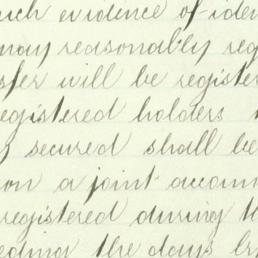 such evidence of iden
may reasonably req
sfer will be register
registered holders
secured shall be
on a joint accoun
registered during t
eding the days